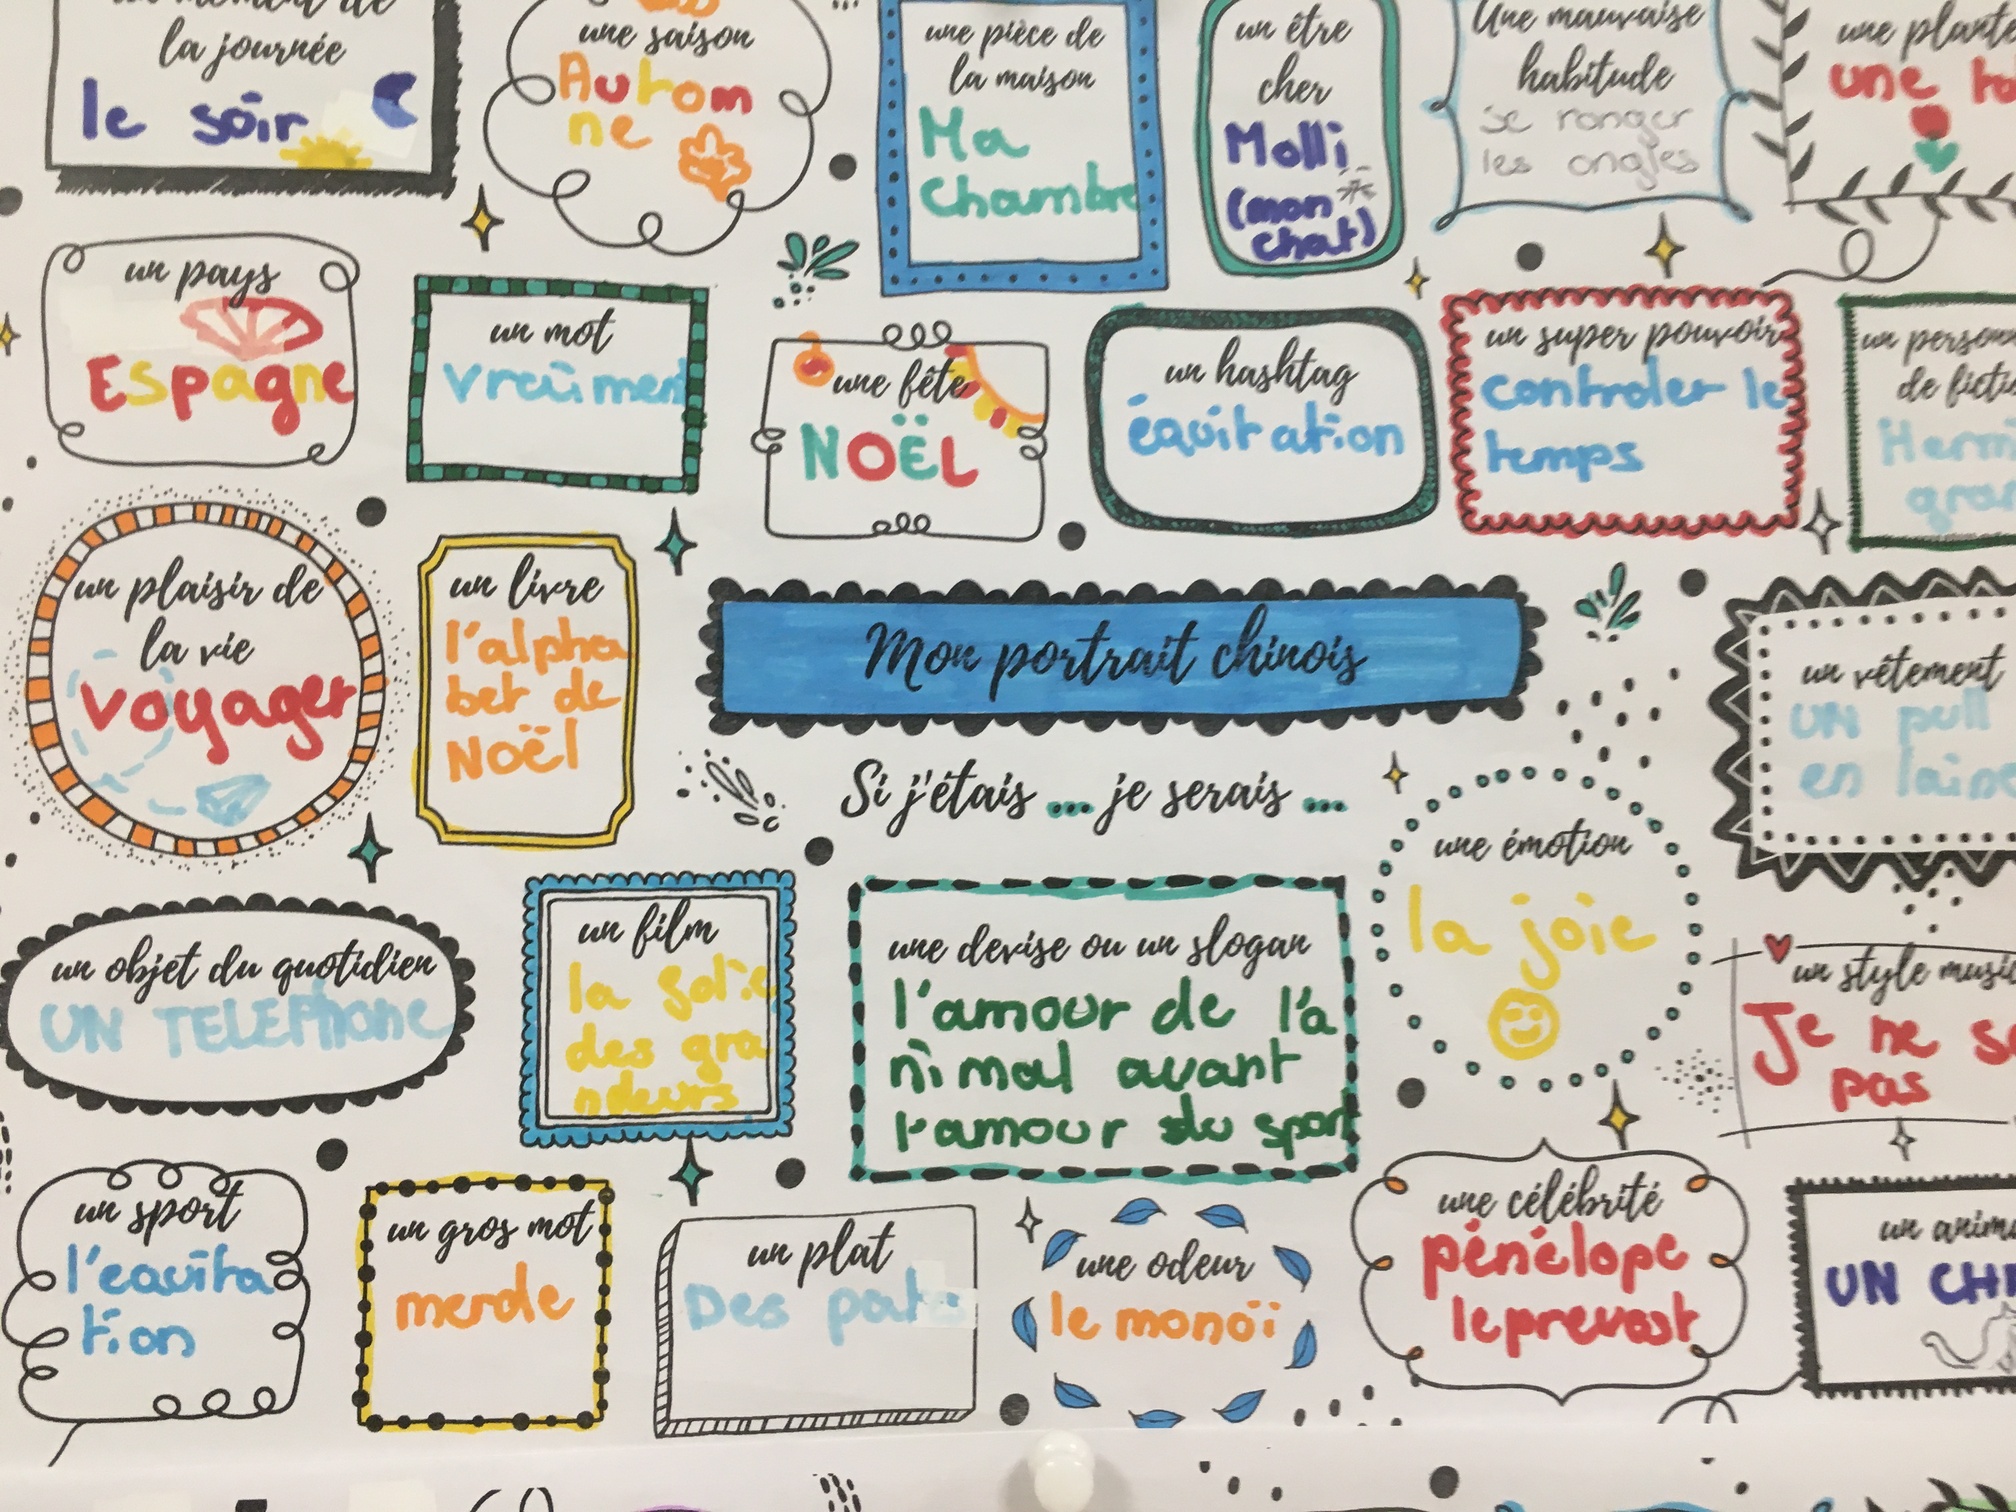 la journée
le soir
une saison
Autom
ne
une pièce de
la maison
Ma
chambre
un être
cher
Molli
(mon
chat)
Une mauvaise
habitude
se ronger
les ongles
une plante
une
un pays
Espagne
un mot
vraiment
une fête
NOËL
un hashtag
équitation
un super pouvoir
controler le
temps
un person
de ficti
Herm
gran
un plaisir de
la vie
voyager
un livre
l'alpha
bet de
Noël
Mon portrait chinois
Si j'étais ... je serais ...
un vêtement
UN pull
en laine
une émotion
la joie
un objet du quotidien
UN TELEPhone
un film
la folie
des gra
ndeurs
une devise ou un slogan
l'amour de l'a
nimal avant
l'amour du sport
un style music
Je ne s
pas
un sport
l'équita
tion
un gros mot
merde
un plat
Des pat
une odeur
le monoï
une célébrité
pénélope
leprevost
un anim
UN CH